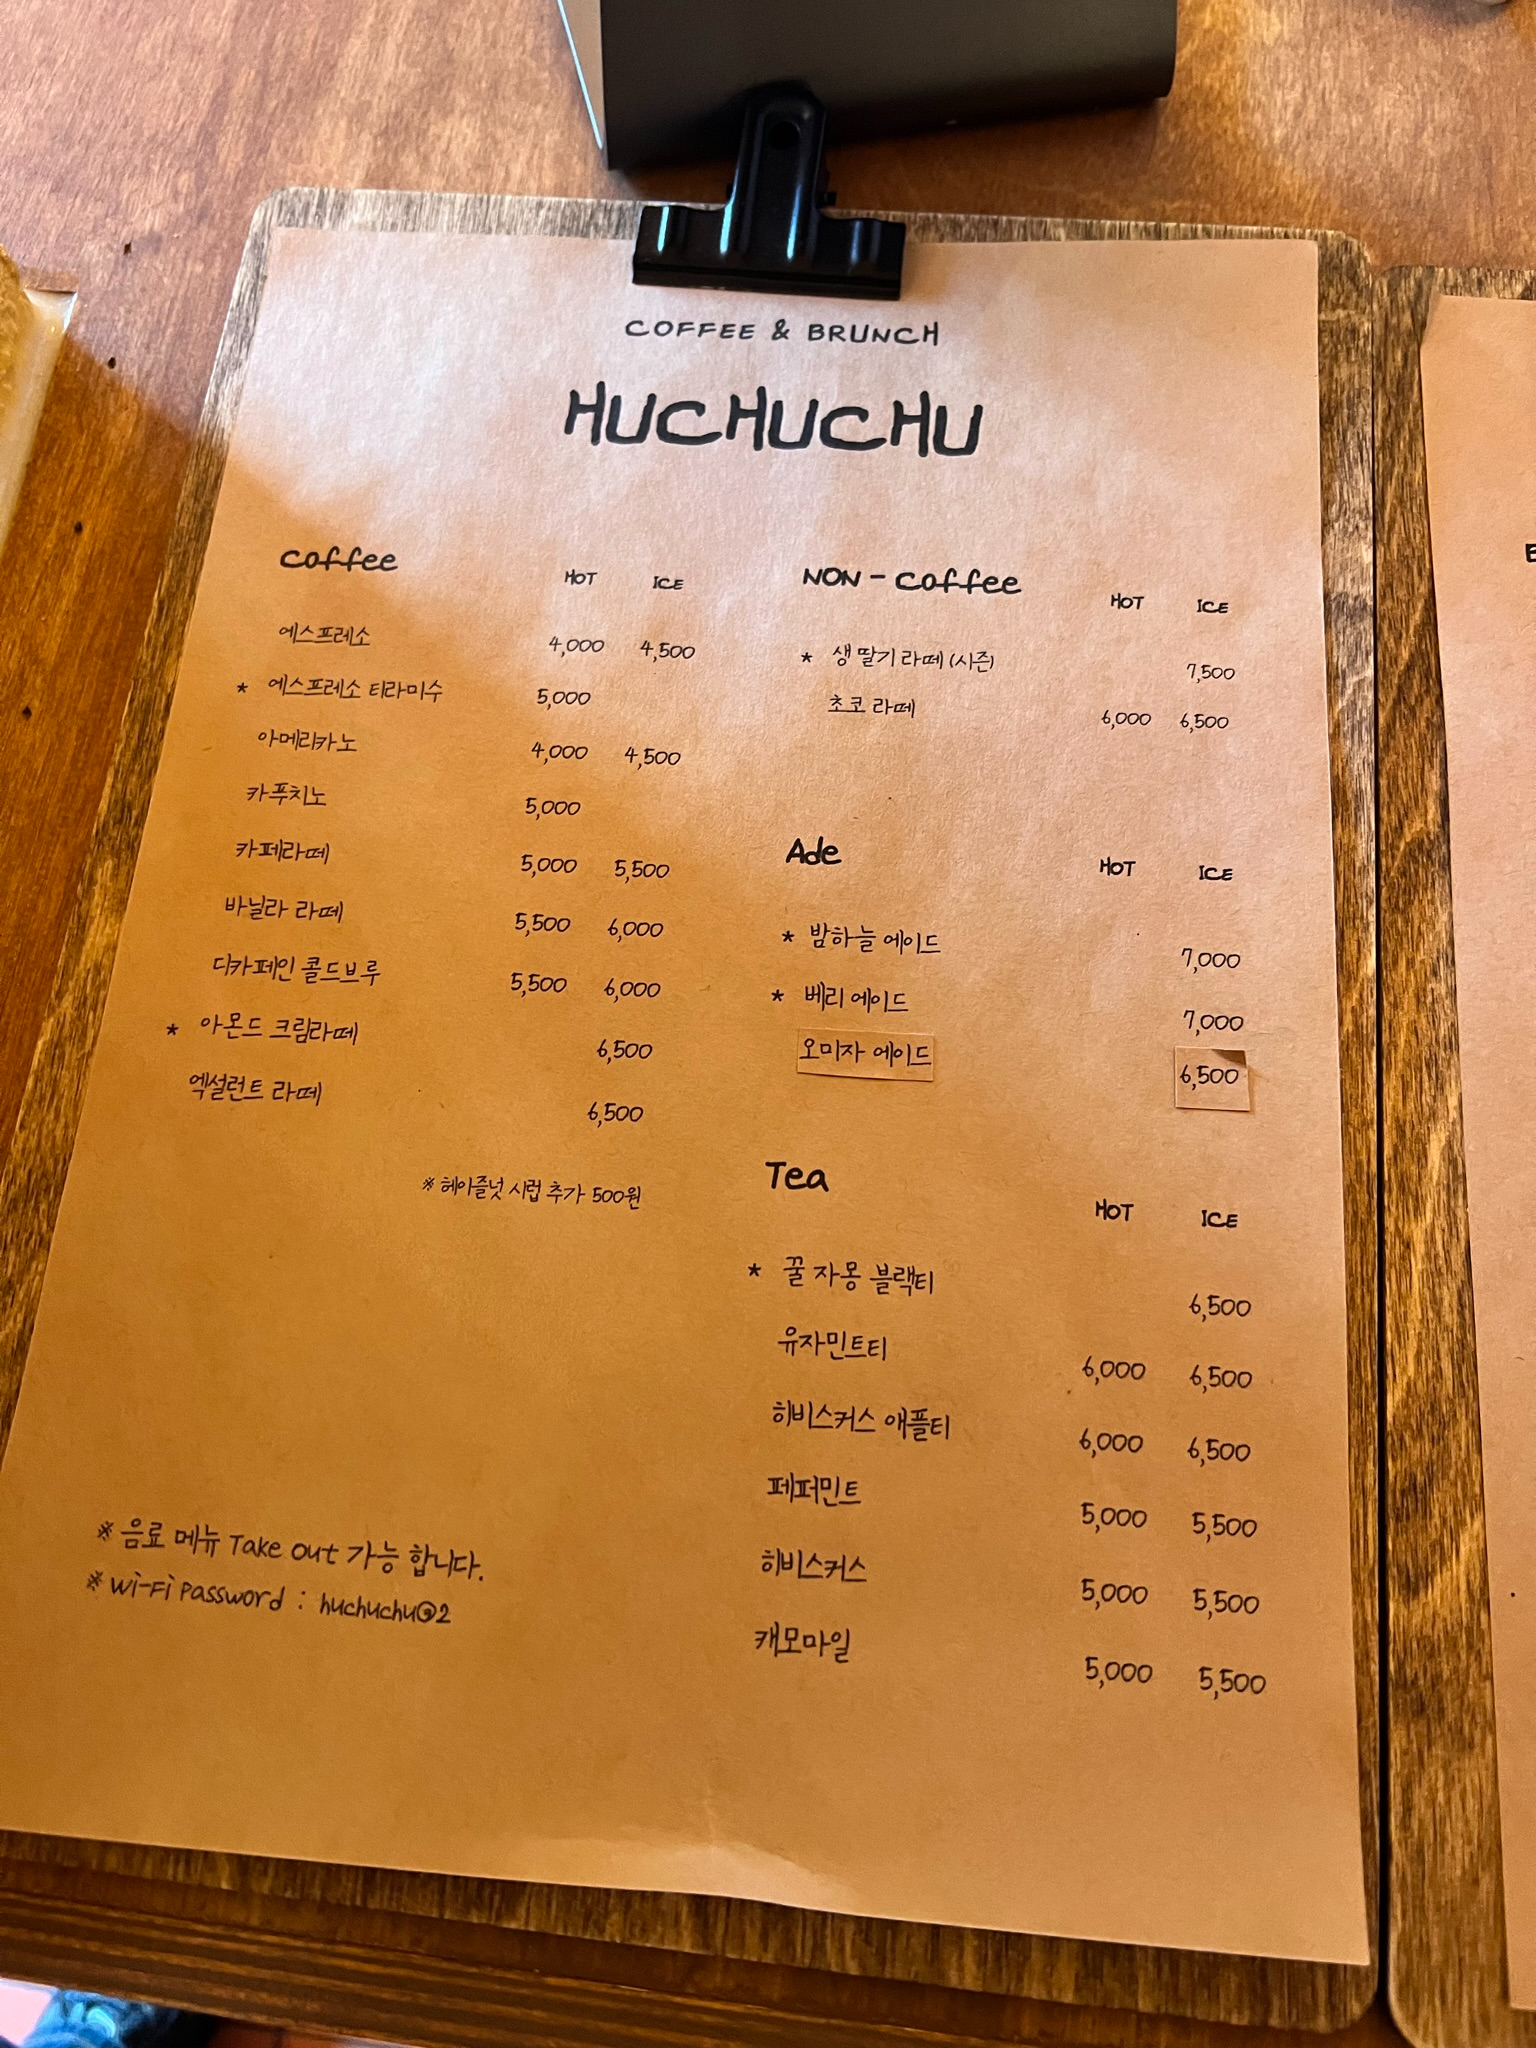 COFFEE & BRUNCH
HUCHUCHU
coffee HOT ICE
에스프레소 4,000 4,500
* 에스프레소 티라미수 5,000
아메리카노 4,000 4,500
카푸치노 5,000
카페라떼 5,000 5,500
바닐라 라떼 5,500 6,000
디카페인 콜드브루 5,500 6,000
* 아몬드 크림라떼 6,500
엑설런트 라떼 6,500
※ 헤이즐넛 시럽 추가 500원
NON - coffee HOT ICE
* 생딸기 라떼 (시즌) 7,500
초코 라떼 6,000 6,500
Ade HOT ICE
* 밤하늘 에이드 7,000
* 베리 에이드 7,000
오미자 에이드 6,500
Tea HOT ICE
* 꿀 자몽 블랙티 6,500
유자민트티 6,000 6,500
히비스커스 애플티 6,000 6,500
페퍼민트 5,000 5,500
히비스커스 5,000 5,500
캐모마일 5,000 5,500
※ 음료 메뉴 Take out 가능 합니다.
※ Wi-Fi Password : huchuchu@2